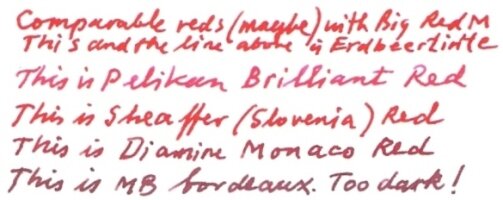 Comparable reds (maybe) with Big Red M
This and the line above is Erdbeertinte
This is Pelikan Brilliant Red
This is Sheaffer (Slovenia) Red
This is Diamine Monaco Red
This is MB bordeaux. Too dark!